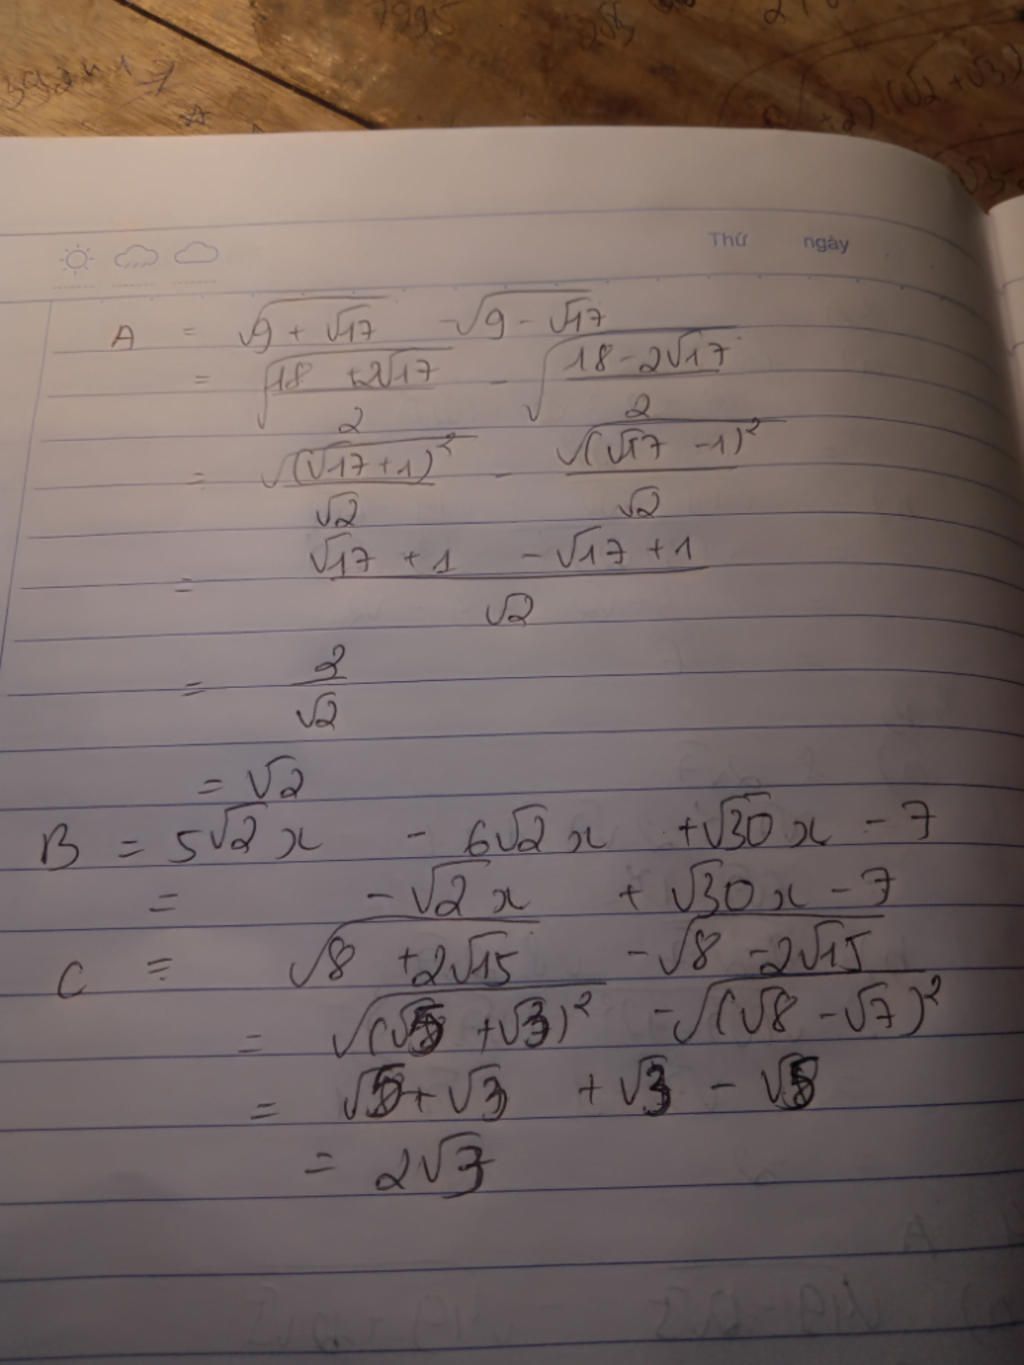 7295
258
(√2 + √3)
Thứ ngày
A = √(9 + √17) - √(9 - √17)
= √((18 + 2√17)/2) - √((18 - 2√17)/2)
= √((√17 + 1)²)/√2 - √((√17 - 1)²)/√2
= (√17 + 1 - √17 + 1)/√2
= 2/√2
= √2
B = 5√2 x - 6√2 x + √30 x - 7
= - √2 x + √30 x - 7
C = √(8 + 2√15) - √(8 - 2√15)
= √((√5 + √3)²) - √((√8 - √7)²)
= √5 + √3 + √3 - √5
= 2√3